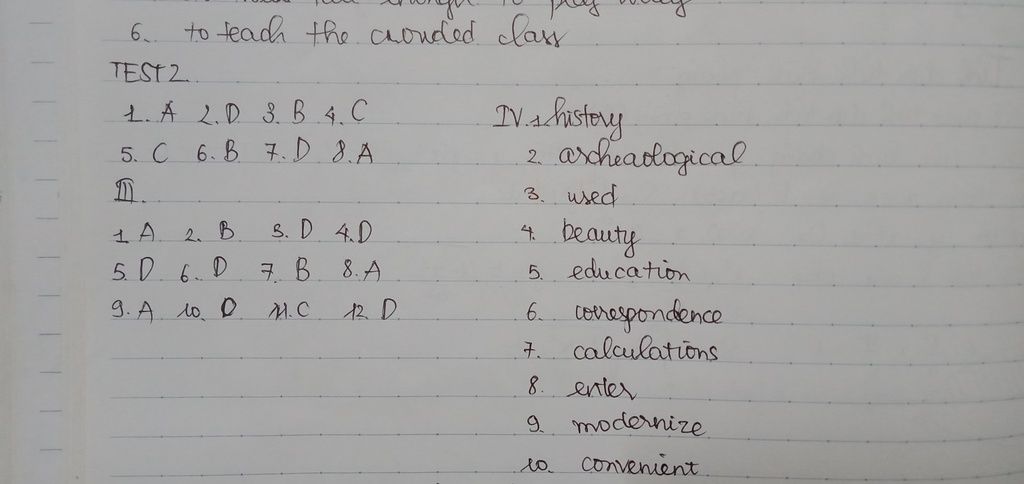 to play
6. to teach the crowded class
TEST 2
1. A 2. D 3. B 4. C
5. C 6. B 7. D 8. A
III.
1 A 2. B 3. D 4. D
5. D 6. D 7. B 8. A
9. A 10. D 11. C 12. D
IV. 1 history
2. archeaological
3. used
4. beauty
5. education
6. correspondence
7. calculations
8. enter
9. modernize
10. convenient